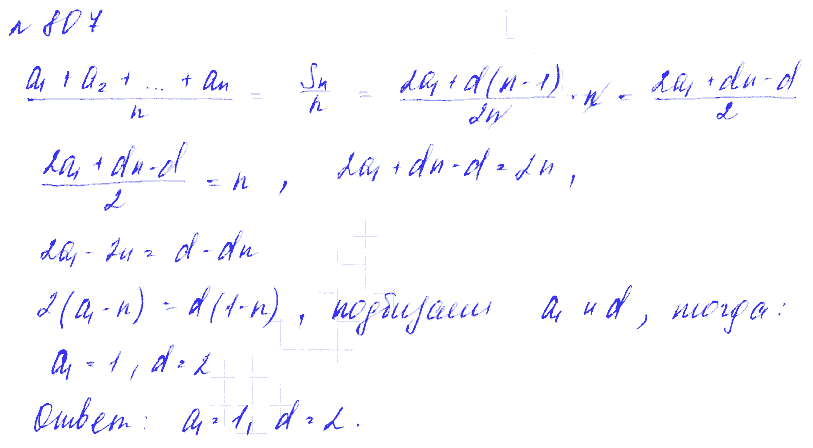 № 807
(a₁ + a₂ + ... + aₙ)/n = Sₙ/n = (2a₁ + d(n-1))/(2n) · n = (2a₁ + dn - d)/2
(2a₁ + dn - d)/2 = n , 2a₁ + dn - d = 2n ,
2a₁ - 2n = d - dn
2(a₁ - n) = d(1 - n) , подбираем a₁ и d , тогда :
a₁ = 1 , d = 2
Ответ : a₁ = 1, d = 2 .